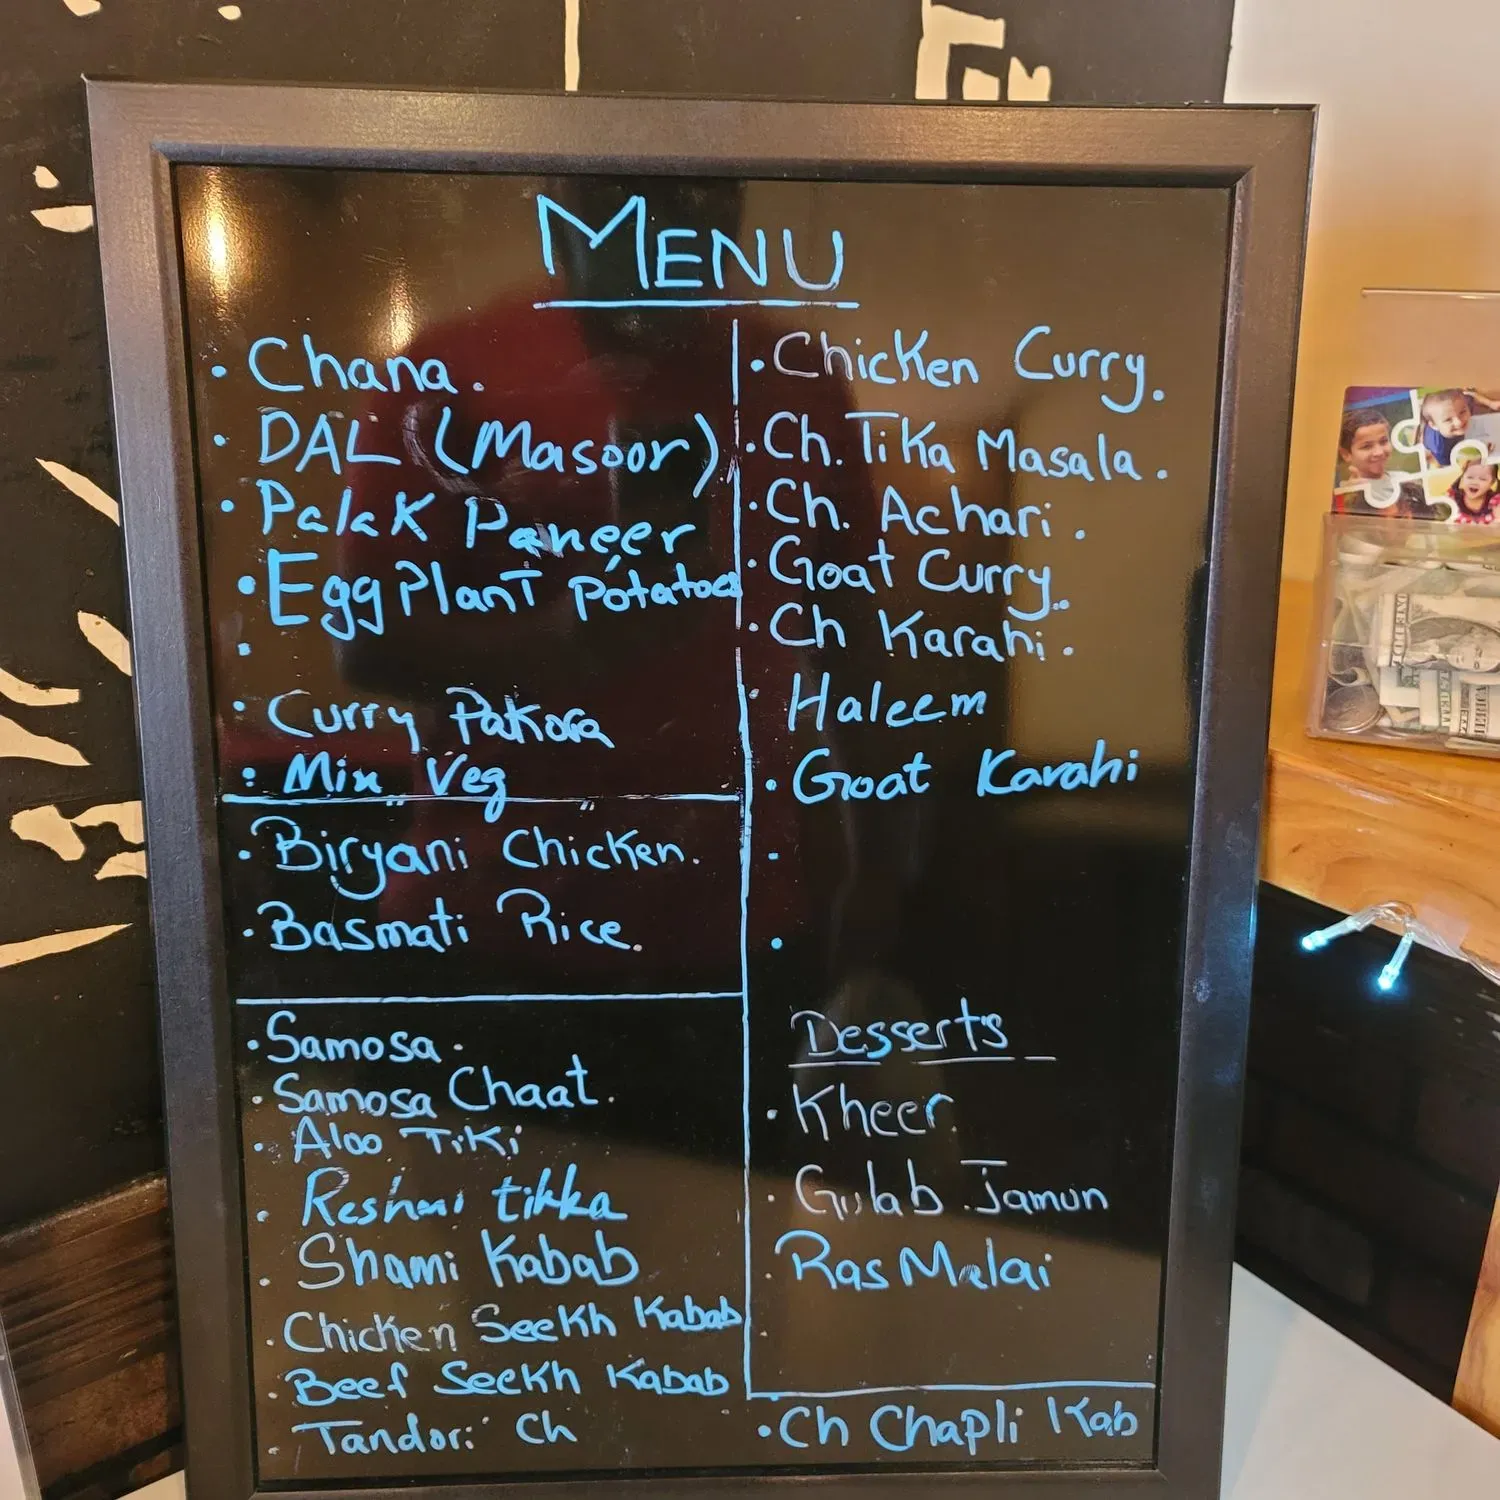 MENU
Chana.
DAL (Masoor)
Palak Paneer
Eggplant Potatoes
Curry Pakora
Mix Veg
Biryani Chicken.
Basmati Rice.
Samosa.
Samosa Chaat.
Aloo Tiki
Reshmi tikka
Shami Kabab
Chicken Seekh Kabab
Beef Seekh Kabab
Tandori Ch
Chicken Curry.
Ch. Tika Masala.
Ch. Achari.
Goat Curry.
Ch Karahi.
Haleem
Goat Karahi
Desserts
Kheer.
Gulab Jamun
Ras Malai
Ch Chapli Kab